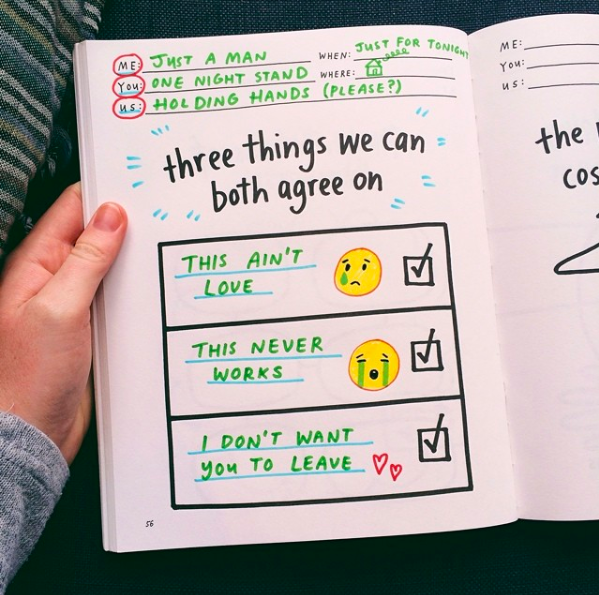 ME: JUST A MAN WHEN: JUST FOR TONIGHT
You: ONE NIGHT STAND WHERE:
us: HOLDING HANDS (PLEASE?)
three things we can
both agree on
THIS AIN'T
LOVE
THIS NEVER
WORKS
I DON'T WANT
you TO LEAVE
56
ME:
You:
us:
the
cos